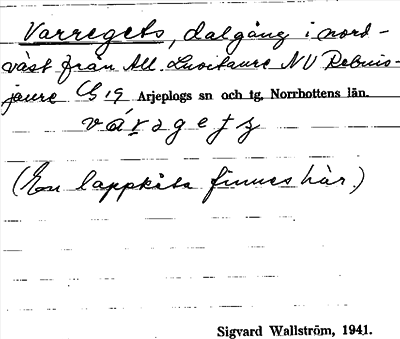 Varregets, dalgång i nord-
väst från All. Luoitaure NV Rebnis-
jaure Cb 19 Arjeplogs sn och tg, Norrbottens län.
váragetz
(En lappkåta finnes här.)
Sigvard Wallström, 1941.